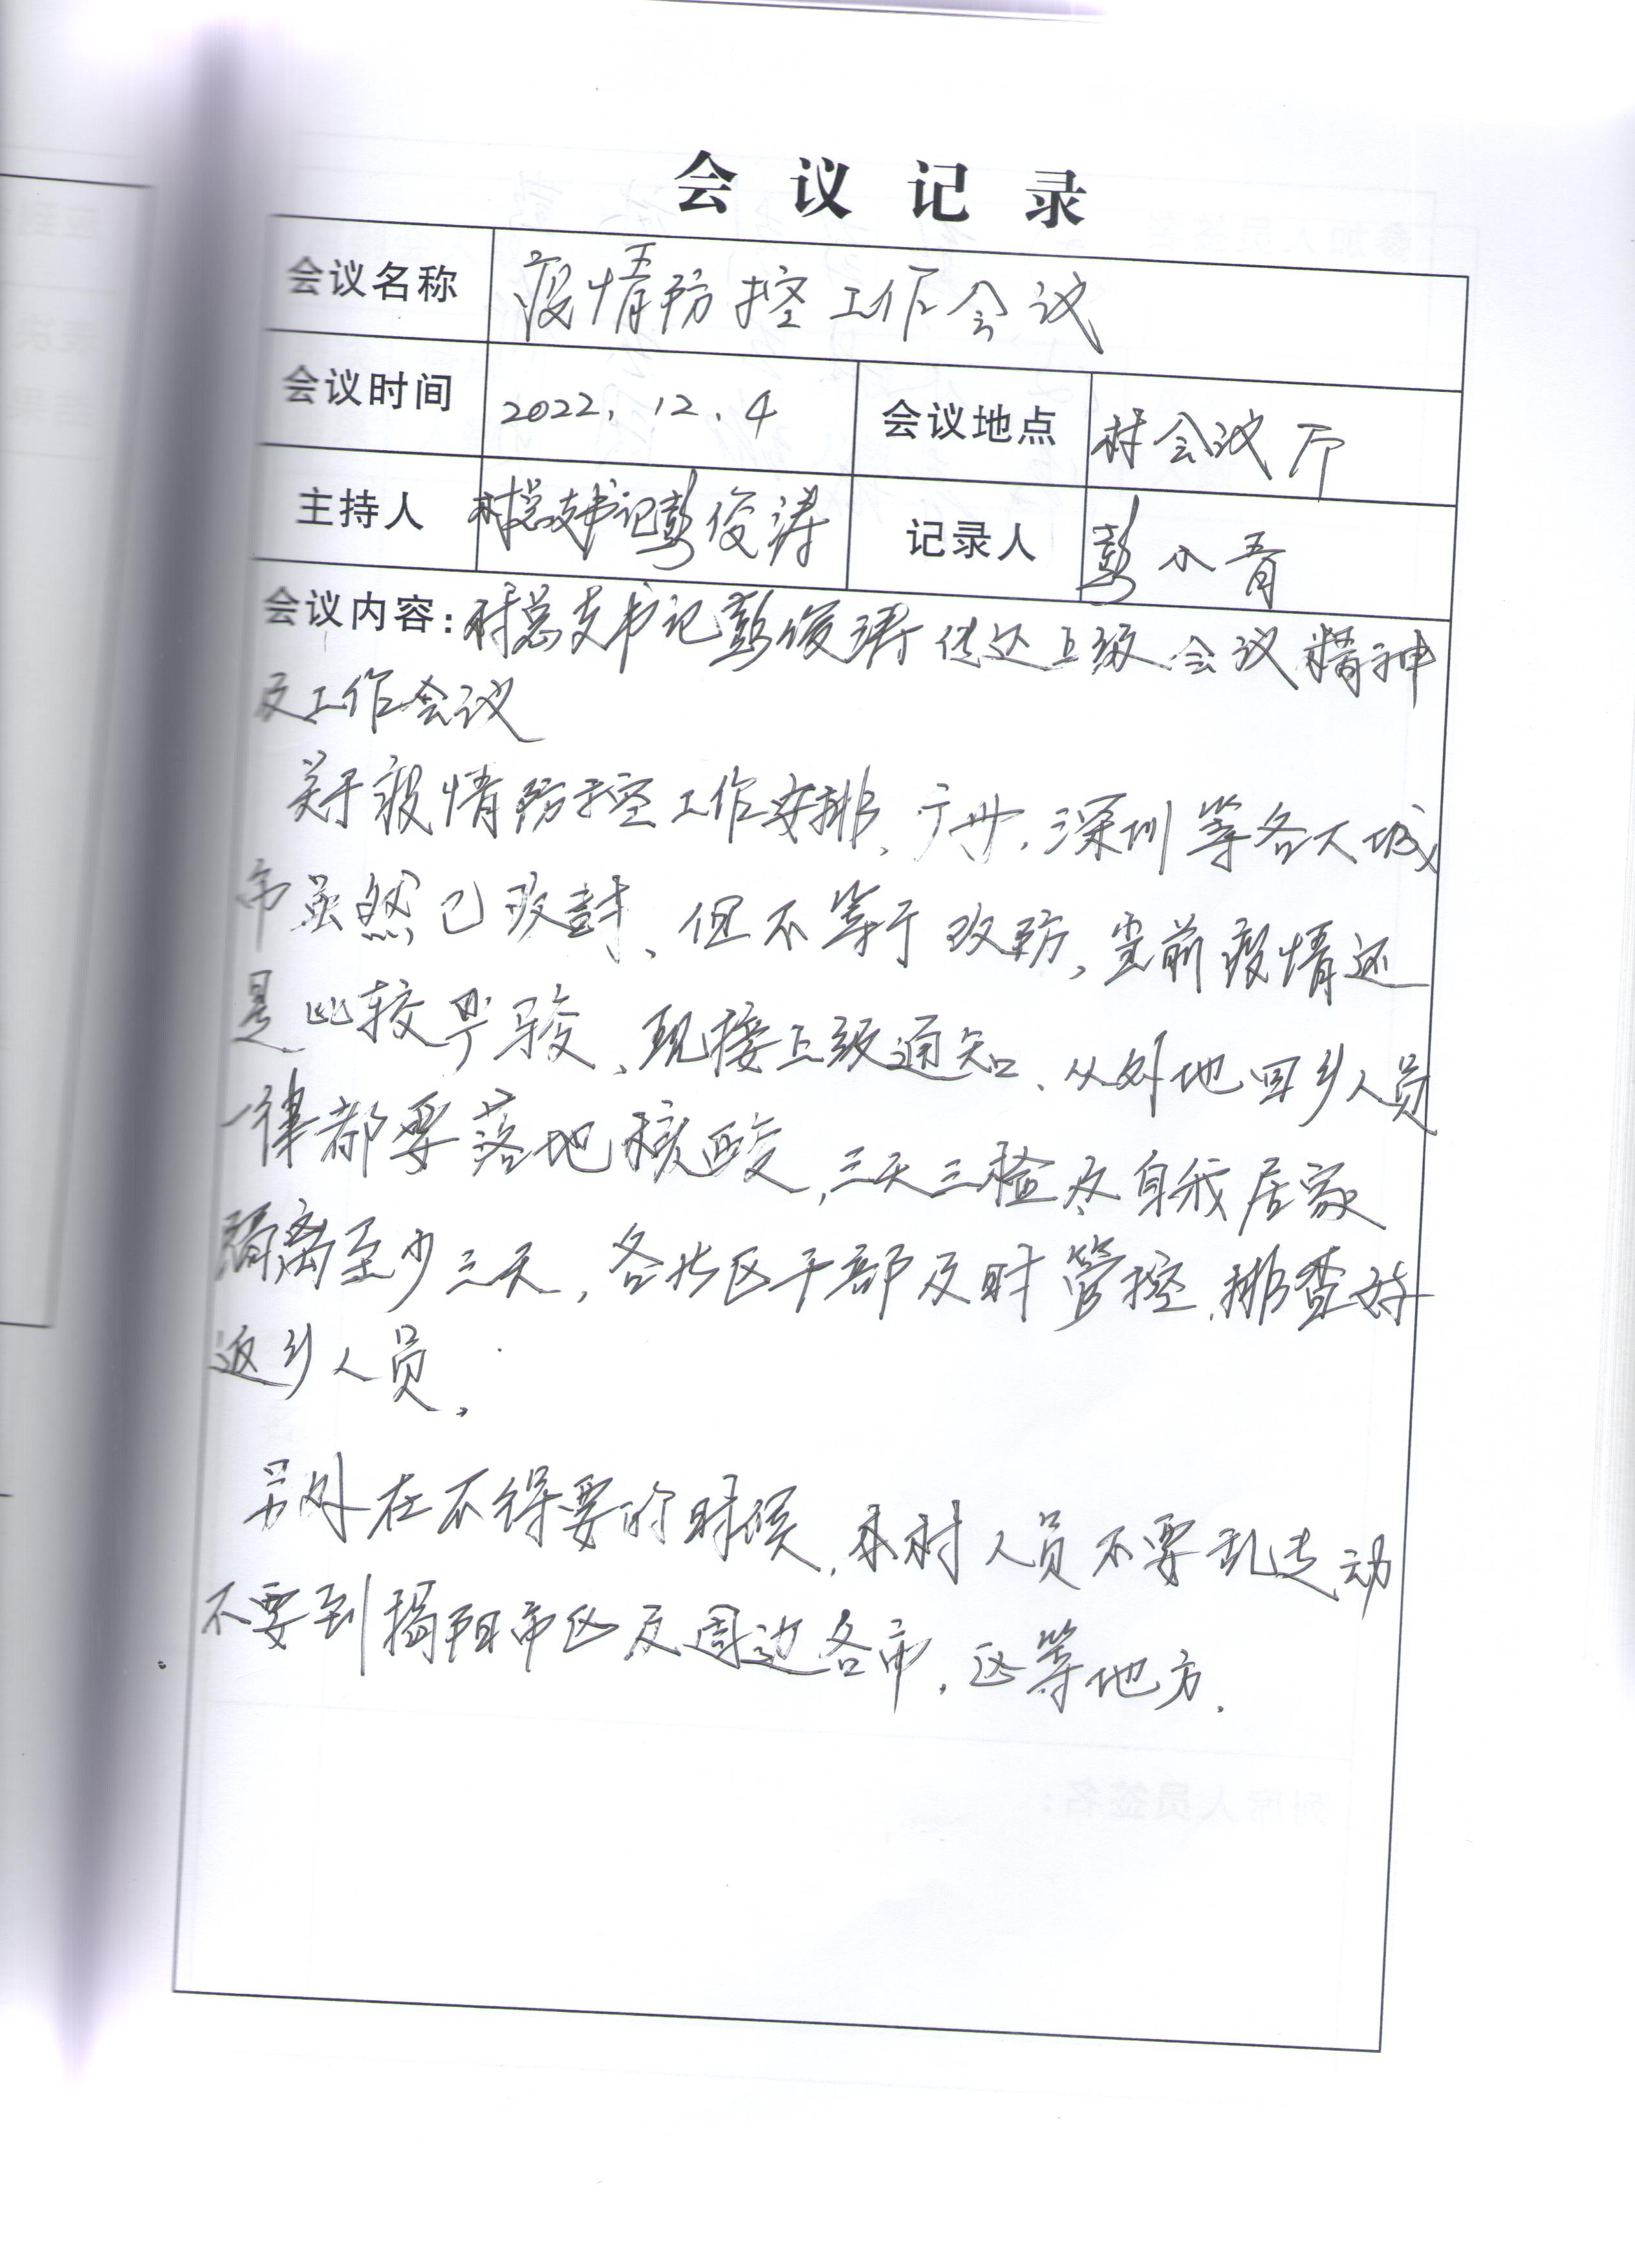 会议记录
会议名称 疫情防控工作会议
会议时间 2022.12.4 会议地点 村会议厅
主持人 村总支书记彭俊涛 记录人 彭小青
会议内容：村总支书记彭俊涛传达上级会议精神
及工作会议
关于疫情防控工作安排、广州、深圳等各大城
市虽然已改封、但不等于改防，当前疫情还
是比较严骏、现接上级通知、从外地回乡人员
一律都要落地核酸，三天三检及自我居家
隔离至少三天，各片区干部及时管控、排查好
返乡人员。
另外在不得要的时候，本村人员不要乱走动
不要到揭阳市区及周边各市、区等地方.